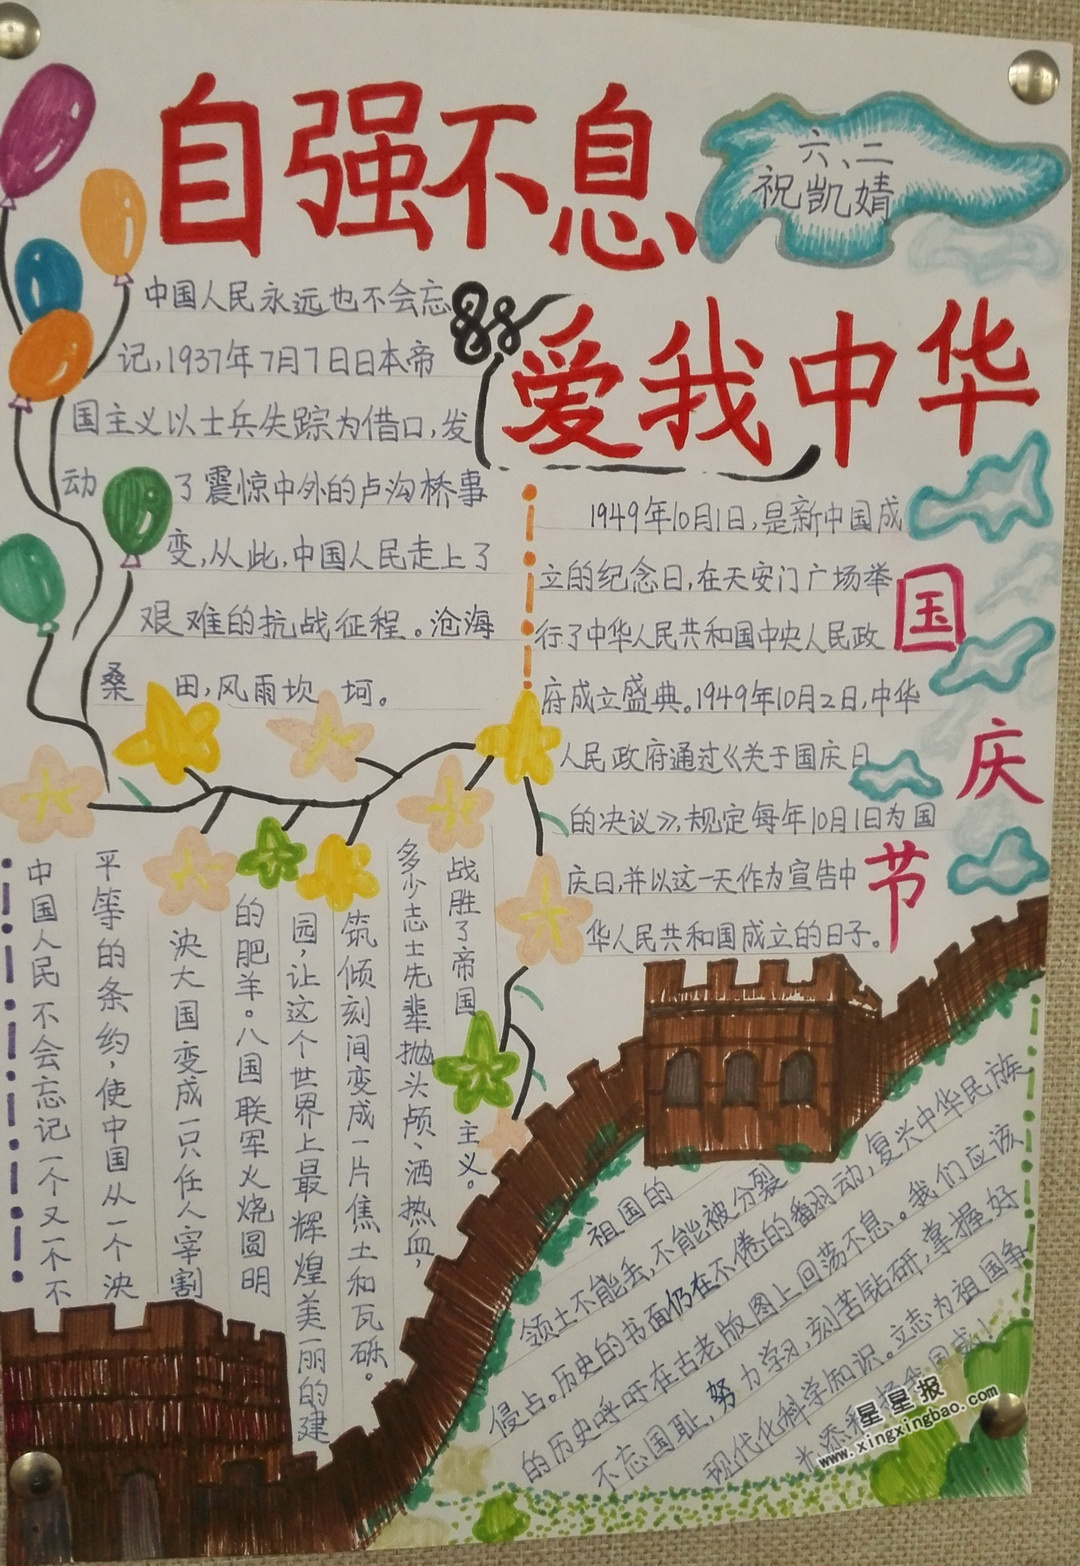 自强不息
六、二
祝凯婧
爱我中华
中国人民永远也不会忘
记,1937年7月7日日本帝
国主义以士兵失踪为借口,发
动了震惊中外的卢沟桥事
变,从此,中国人民走上了
艰难的抗战征程。沧海
桑田,风雨坎坷。
国庆节
1949年10月1日,是新中国成
立的纪念日,在天安门广场举
行了中华人民共和国中央人民政
府成立盛典。1949年10月2日,中华
人民政府通过《关于国庆日
的决议》,规定每年10月1日为国
庆日,并以这一天作为宣告中
华人民共和国成立的日子。
中国人民不会忘记一个又一个不
平等的条约,使中国从一个泱
泱大国变成一只任人宰割
的肥羊。八国联军火烧圆明
园,让这个世界上最辉煌美丽的建
筑倾刻间变成一片焦土和瓦砾。
多少志士先辈抛头颅、洒热血,
战胜了帝国主义。
祖国的
领土不能丢,不能被分裂
侵占。历史的书面仍在不倦的翻动,复兴中华民族
的历史呼吁在古老版图上回荡不息。我们应该
不忘国耻,努力学习,刻苦钻研,掌握好
现代化科学知识。立志为祖国争
光添彩
星星报
www.xingxingbao.com